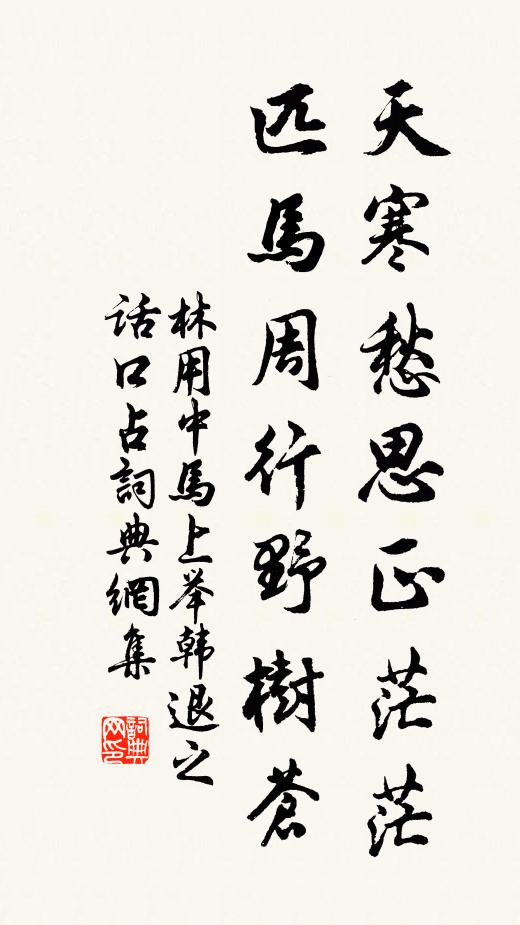 天寒愁思正茫茫
匹馬周行野樹蒼
林用中馬上举韩退之
話口占詞典網集
詞典网印